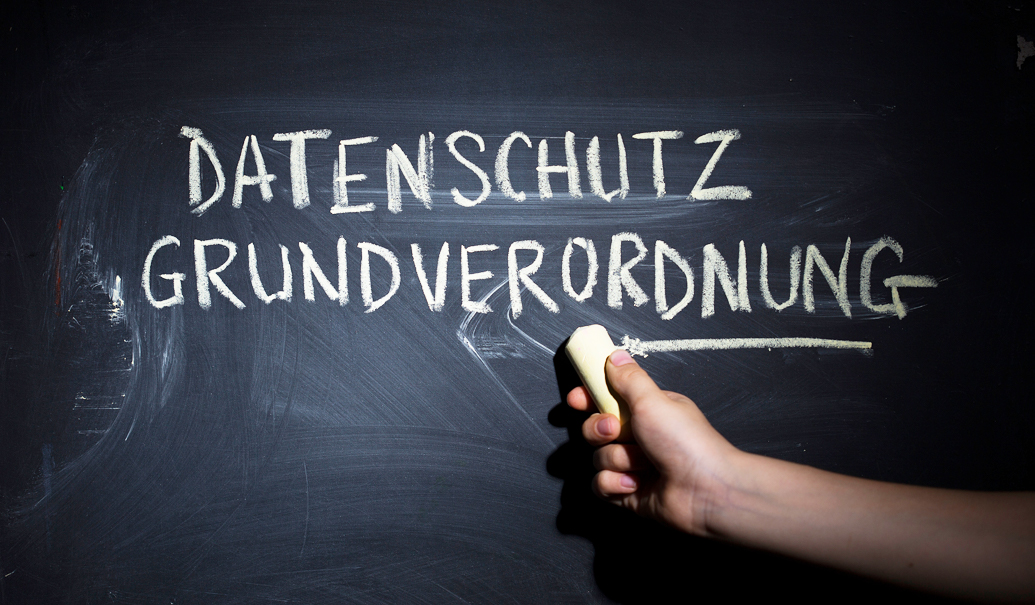 DATENSCHUTZ
GRUNDVERORDNUNG